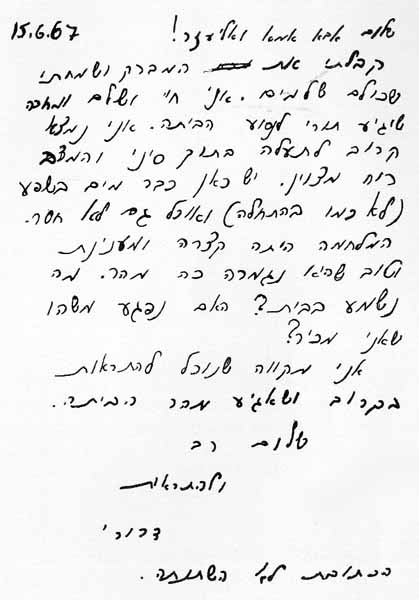 15.6.67
שלום אבא אמא ואליעזר!
קבלתי את המברק ושמחתי
שכולם שלמים. אני חי ושלם ומחכה
שיגיע תורי לנסוע הביתה. אני נמצא
קרוב לתעלה בתוך סיני והמצב
רוח מצוין. יש כאן כבר מים בשפע
(לא כמו בהתחלה) ואוכל גם לא חסר.
המלחמה היתה קצרה ומענינת
וטוב שהיא נגמרה כה מהר. מה
נשמע בבית? האם נפגע משהו
שאני מכיר?
אני מקווה שנוכל להתראות
בקרוב ושאגיע מהר הביתה.
שלום רב
ולהתראות
דרורי
הכתובת לא השתנתה.